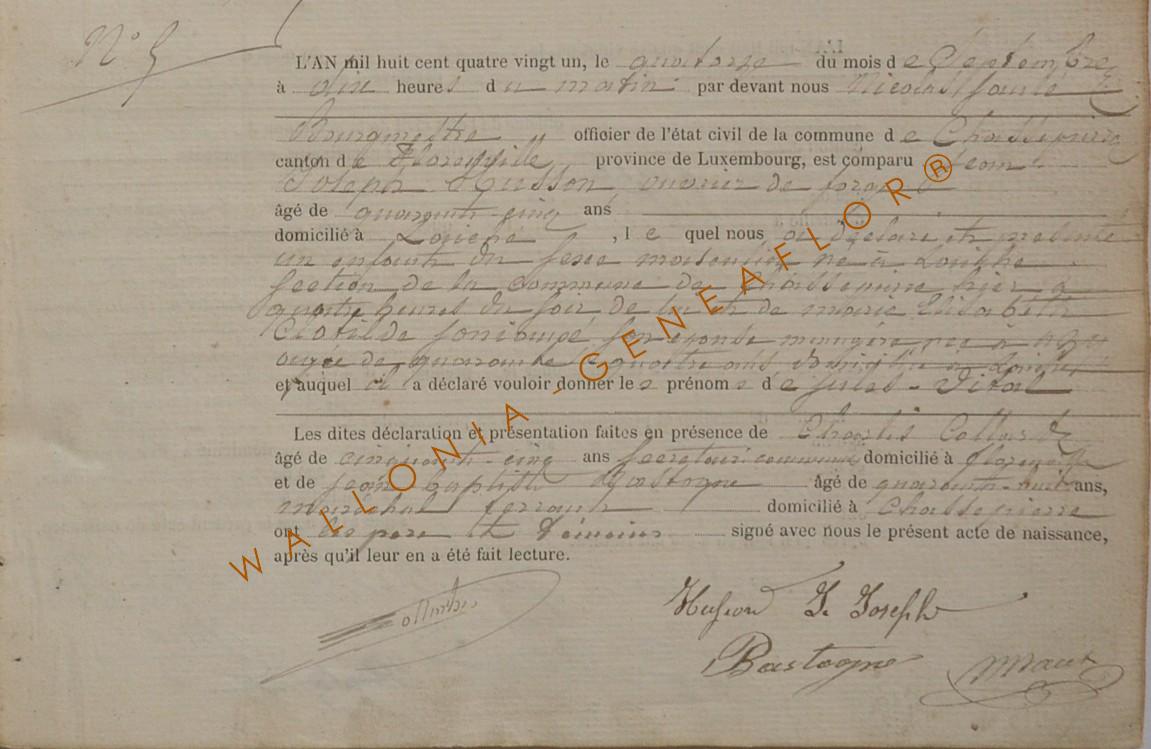 N° 5
L'AN mil huit cent quatre vingt un, le quatorze du mois de Septembre
à dix heures du matin par devant nous Nicolas
Bourgmestre officier de l'état civil de la commune de Chassepierre
canton de Florenville province de Luxembourg, est comparu Jean
Joseph Husson, ouvrier de forge
âgé de quarante-cinq ans
domicilié à , le quel nous a déclaré et présenté
un enfant du sexe masculin né à
section de la commune de Chassepierre hier à
quatre heures du soir de lui et de marie Elisabeth
Clotilde son épouse ménagère née à
agée de quarante quatre ans
et auquel il a déclaré vouloir donner les prénoms de jules - Vital
Les dites déclaration et présentation faites en présence de Charles
âgé de cinquante-cinq ans secrétaire communal domicilié à florenville
et de jean baptiste Bastogne âgé de quarante-huit ans,
maréchal ferrant domicilié à Chassepierre
ont les père et témoins signé avec nous le présent acte de naissance,
après qu'il leur en a été fait lecture.
Husson J. Joseph
Bastogne
WALLONIA - GENEAFLOR®